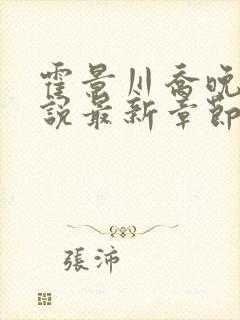 霍景川喬晚
說最新章節
張沛